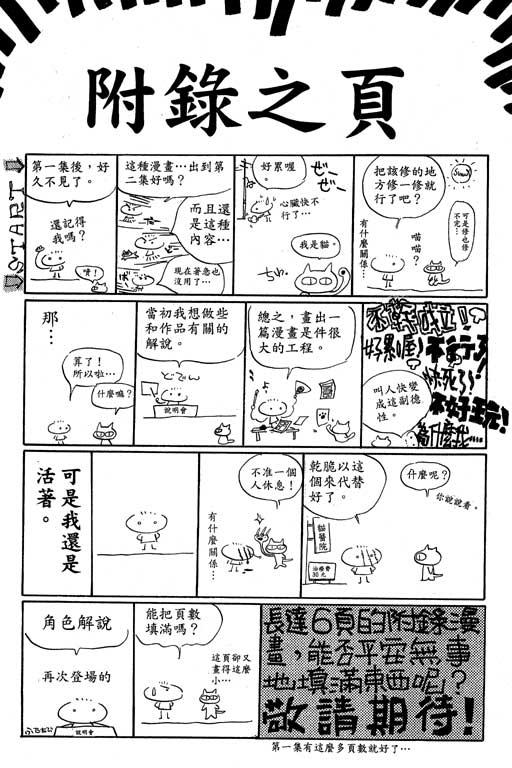 附錄之頁
START
第一集後，好
久不見了。
還記得
我嗎？
噴！
這種漫畫…出到
第二集好嗎？
而且還
是這種
內容…
現在著急也
沒用了…
好累喔。
ぜー
ぜー
心臟快不
行了…
我是貓。
把該修的地
方修一修就
行了吧？
有什麼關係…
喵喵？
可是修也修
不完…
那…
算了！
所以啦…
什麼嘛？
當初我想做些
和作品有關的
解說。
どでん
說明會
總之，畫出一
篇漫畫是件很
大的工程。
不幹啦！
好累喔！
不行了！
忙死了～
不好玩！
為什麼我…
叫人快變
成這副德
性。
可是我還是
活著。
不准一個
人休息！
有什麼關係…
乾脆以這
個來代替
好了。
什麼呢？
你說說看。
貓醫院
治療費
30元
角色解說
再次登場的
說明會
能把頁數
填滿嗎？
這頁卻又
畫得這麼
小…
長達6頁的附錄漫
畫，能否平安無事
地填滿東西呢？
敬請期待！
第一集有這麼多頁數就好了…